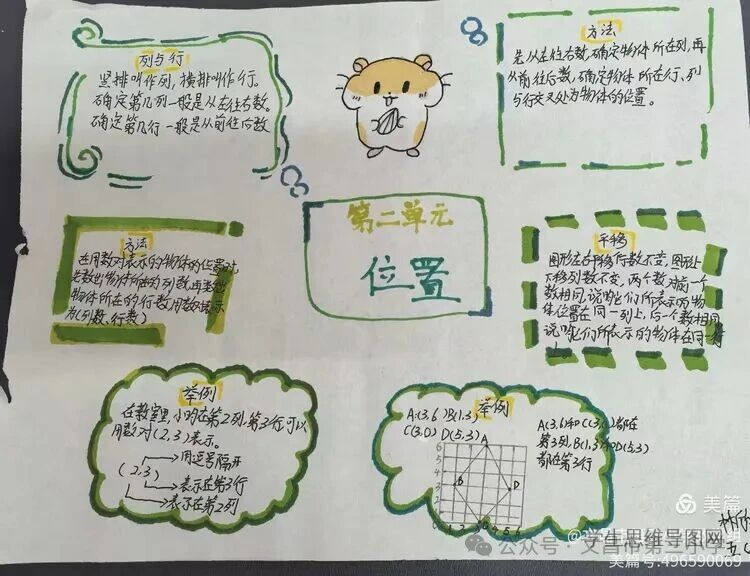 列与行
竖排叫作列,横排叫作行。
确定第几列一般是从左往右数。
确定第几行一般是从前往后数
方法
先从左往右数,确定物体所在列,再
从前往后数,确定物体所在行、列
与行交叉处为物体的位置。
第二单元
位置
方法
在用数对表示的物体的位置时,
先数出物体所在的列数,再数出
物体所在的行数,用数对表示
为(列数、行数)
平移
图形左右平移行数不变,图形上
下移列数不变,两个数对前一个
数相同,说明它们所表示两物
体位置在同一列上,后一个数相同
说明它们所表示的物体在同一行
上
举例
在教室里,小明在第2列,第3行,可以
用数对(2,3)表示。
(2,3)
用逗号隔开
表示在第3行
表示在第2列
举例
A(3,6)B(1,3)
C(3,0)D(5,3)
A(3,6)和C(3,0)都在
第3列,B(1,3)和D(5,3)
都在第3行
A
B
D
美篇
公众号·学生思维导图网
美篇号:496590069